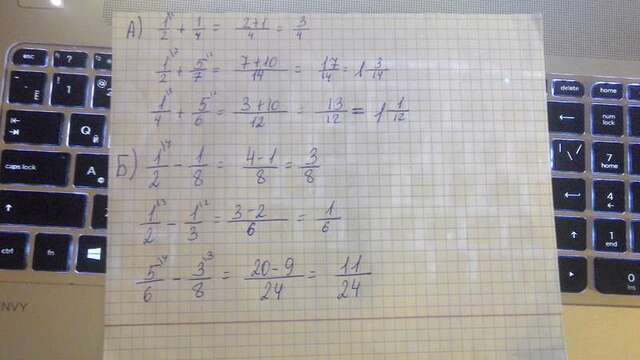 А) 1/2 + 1/4 = 2+1/4 = 3/4
1/2 + 5/7 = 7+10/14 = 17/14 = 1 3/14
1/4 + 5/6 = 3+10/12 = 13/12 = 1 1/12
Б) 1/2 - 1/8 = 4-1/8 = 3/8
1/2 - 1/3 = 3-2/6 = 1/6
5/6 - 3/8 = 20-9/24 = 11/24
esc
Q
caps lock
A
ctrl
fn
ENVY
delete
home
num lock
7
home
4
1
end
0
ins